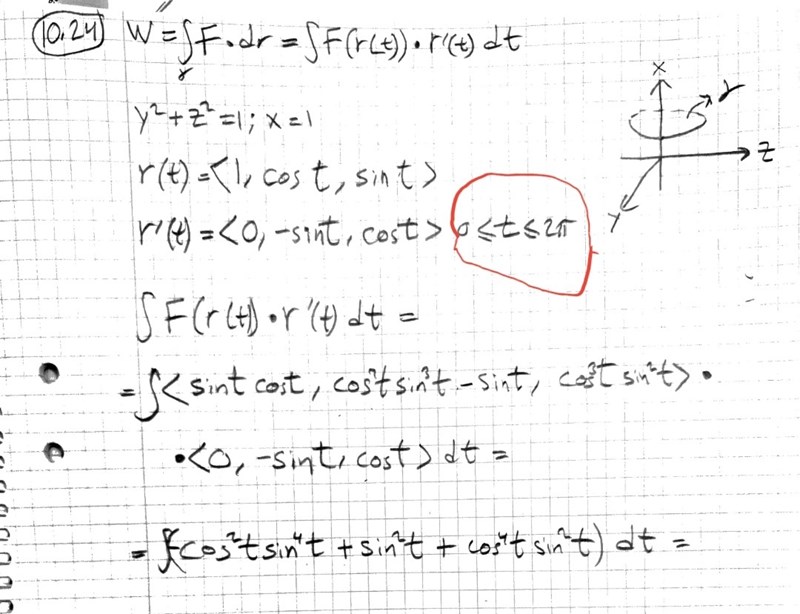 10.24) W = ∫γ F·dr = ∫F(r(t))·r'(t) dt
y²+z²=1; x=1
r(t)=<1, cos t, sin t>
r'(t)=<0, -sint, cost> 0≤t≤2π
x
γ
z
y
∫F(r(t)·r'(t) dt =
=∫< sint cost, cos²t sin³t - sint, cos³t sin²t> ·
·<0, -sint, cost> dt =
= ∫(-cos²t sin⁴t + sin²t + cos⁴t sin²t) dt =